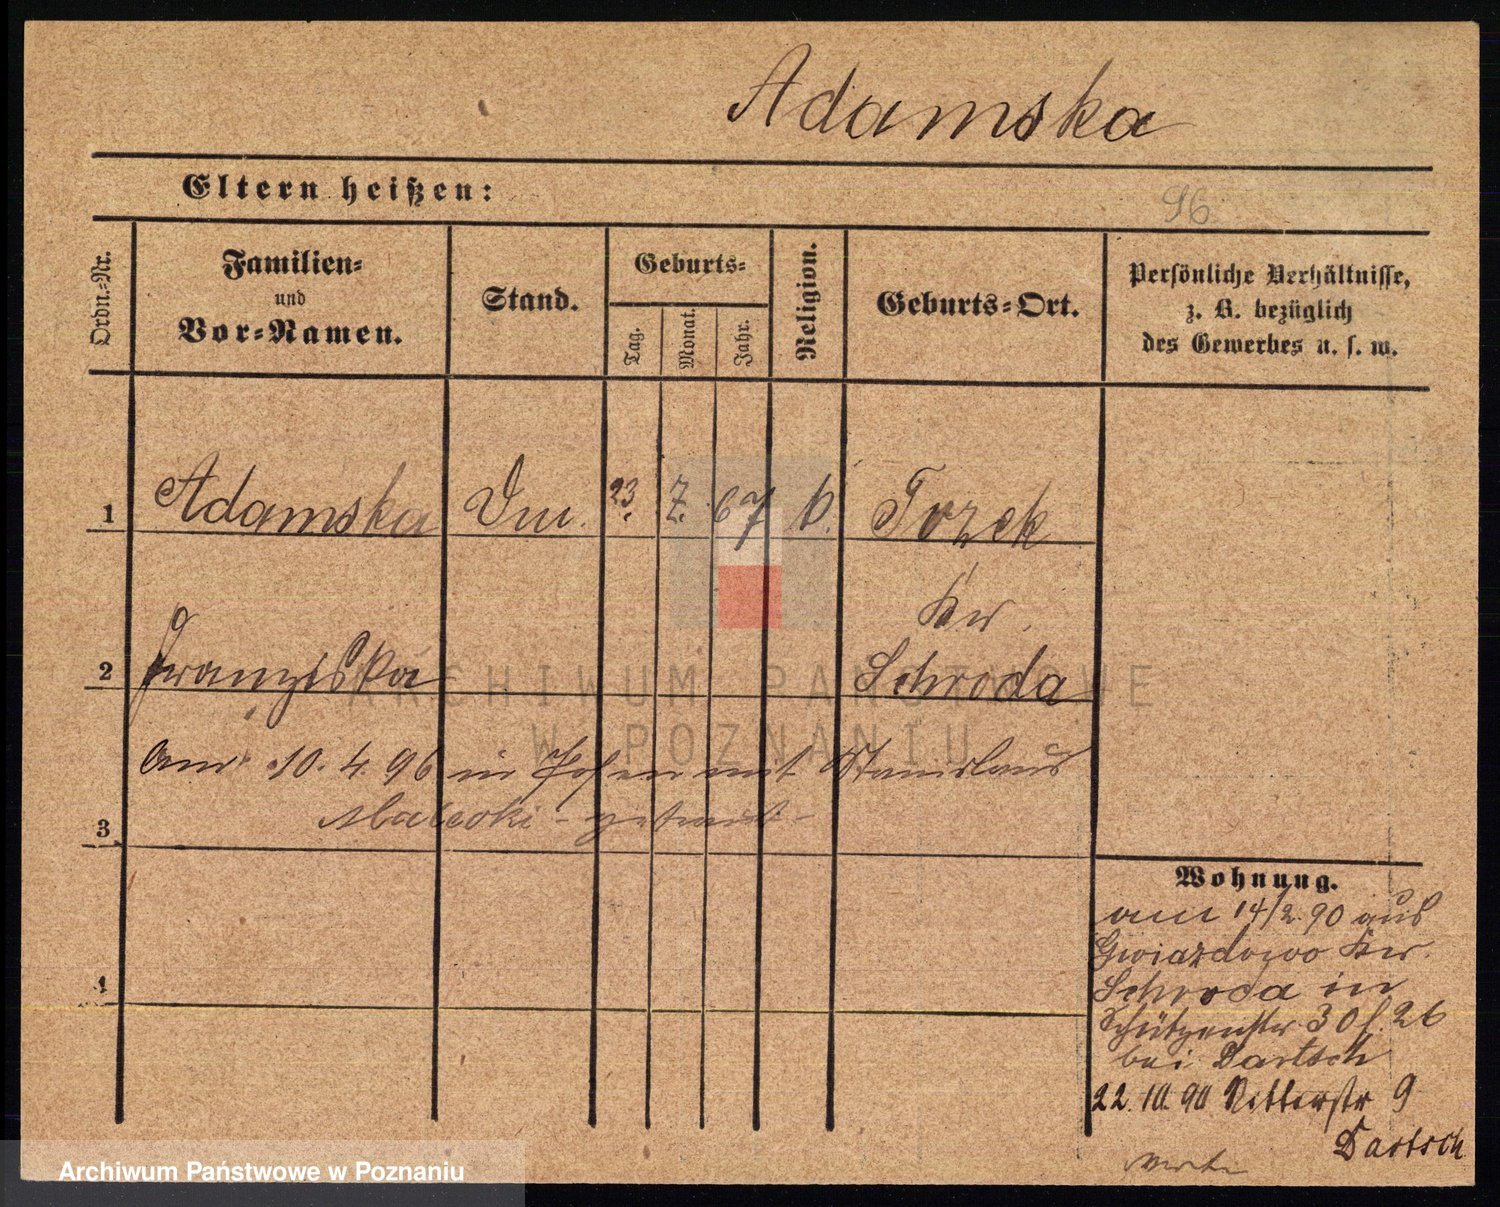 Adamska
Eltern heißen:
96
Ordn.-Nr.
Familien-
und
Vor-Namen.
Stand.
Geburts-
Tag.
Monat.
Jahr.
Religion.
Geburts-Ort.
Persönliche Verhältnisse,
z. B. bezüglich
des Gewerbes u. s. w.
1 Adamska 23. 7. 67 k.
Kr.
2 Franziska Schroda
am 10. 4. 96 in Posen mit Stanislaus
3 Malecki - getraut -
4
Wohnung.
am 14/2. 90 aus
Gwiazdowo Kr.
Schroda in
Schützenstr 30 f. 26
bei Dartsch
22. 10. 90 Ritterstr 9
Dartsch
ARCHIWUM PAŃSTWOWE
W POZNANIU
Archiwum Państwowe w Poznaniu